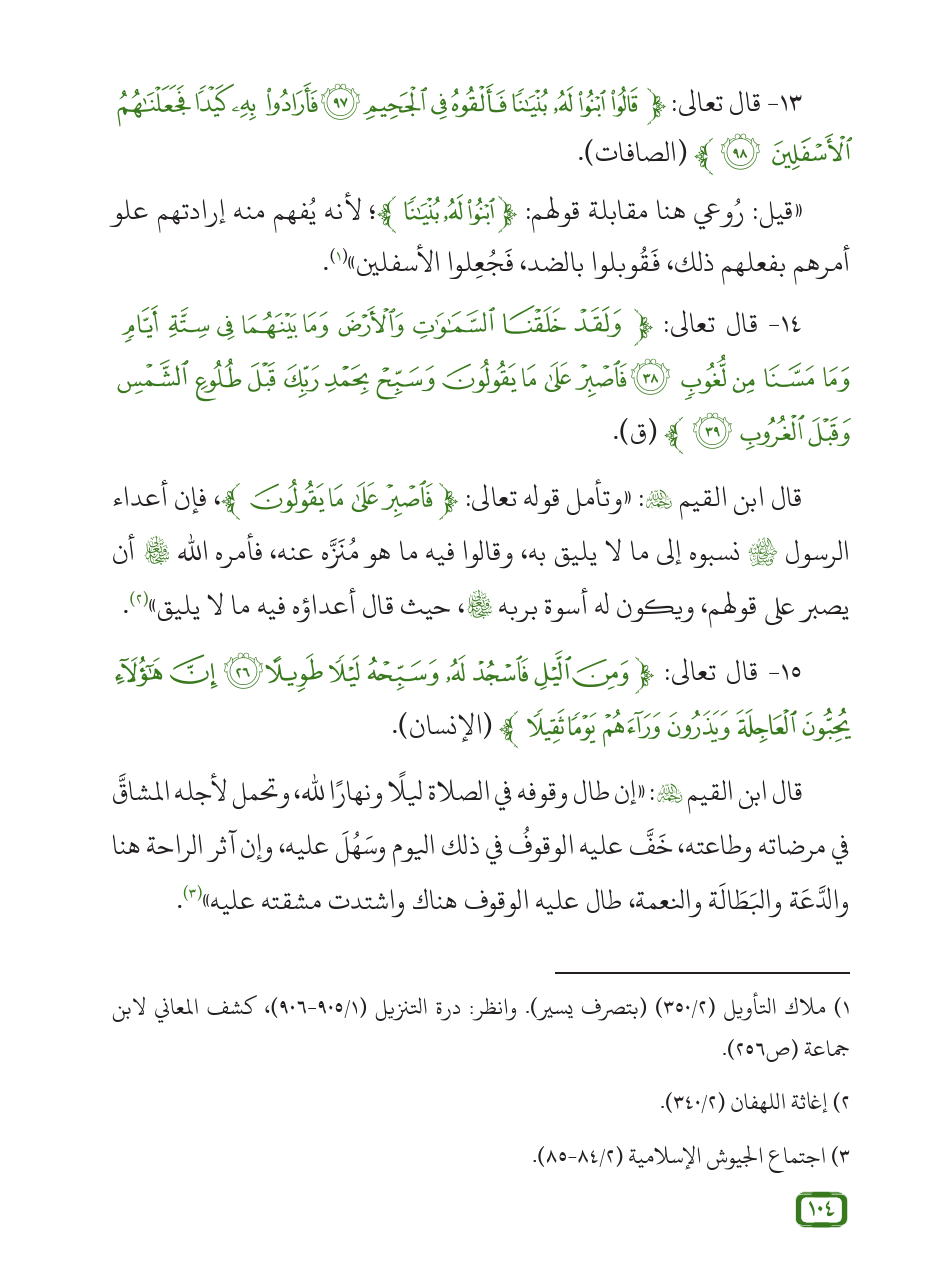 ١٣- قال تعالى: ﴿ قَالُوا۟ ٱبْنُوا۟ لَهُۥ بُنْيَـٰنًا فَأَلْقُوهُ فِى ٱلْجَحِيمِ ٩٧ فَأَرَادُوا۟ بِهِۦ كَيْدًا فَجَعَلْنَـٰهُمُ
ٱلْأَسْفَلِينَ ٩٨ ﴾ (الصافات).
«قيل: رُوعي هنا مقابلة قولهم: ﴿ٱبْنُوا۟ لَهُۥ بُنْيَـٰنًا﴾؛ لأنه يُفهم منه إرادتهم علو
أمرهم بفعلهم ذلك، فَقُوبلوا بالضد، فَجُعِلوا الأسفلين»(١).
١٤- قال تعالى: ﴿ وَلَقَدْ خَلَقْنَا ٱلسَّمَـٰوَٰتِ وَٱلْأَرْضَ وَمَا بَيْنَهُمَا فِى سِتَّةِ أَيَّامٍ
وَمَا مَسَّنَا مِن لُّغُوبٍ ٣٨ فَٱصْبِرْ عَلَىٰ مَا يَقُولُونَ وَسَبِّحْ بِحَمْدِ رَبِّكَ قَبْلَ طُلُوعِ ٱلشَّمْسِ
وَقَبْلَ ٱلْغُرُوبِ ٣٩ ﴾ (ق).
قال ابن القيم رحمه الله: «وتأمل قوله تعالى: ﴿ فَٱصْبِرْ عَلَىٰ مَا يَقُولُونَ ﴾، فإن أعداء
الرسول ﷺ نسبوه إلى ما لا يليق به، وقالوا فيه ما هو مُنَزَّه عنه، فأمره الله أن
يصبر على قولهم، ويكون له أسوة بربه، حيث قال أعداؤه فيه ما لا يليق»(٢).
١٥- قال تعالى: ﴿ وَمِنَ ٱلَّيْلِ فَٱسْجُدْ لَهُۥ وَسَبِّحْهُ لَيْلًا طَوِيلًا ٢٦ إِنَّ هَـٰٓؤُلَآءِ
يُحِبُّونَ ٱلْعَاجِلَةَ وَيَذَرُونَ وَرَآءَهُمْ يَوْمًا ثَقِيلًا ﴾ (الإنسان).
قال ابن القيم رحمه الله: «إن طال وقوفه في الصلاة ليلًا ونهارًا لله، وتحمل لأجله المشاقَّ
في مرضاته وطاعته، خَفَّ عليه الوقوفُ في ذلك اليوم وسَهُلَ عليه، وإن آثر الراحة هنا
والدَّعَة والبَطَالَة والنعمة، طال عليه الوقوف هناك واشتدت مشقته عليه»(٣).
١) ملاك التأويل (٣٥٠/٢) (بتصرف يسير). وانظر: درة التنزيل (٩٠٥/١-٩٠٦)، كشف المعاني لابن
جماعة (ص٢٥٦).
٢) إغاثة اللهفان (٣٤٠/٢).
٣) اجتماع الجيوش الإسلامية (٨٤/٢-٨٥).
١٠٤